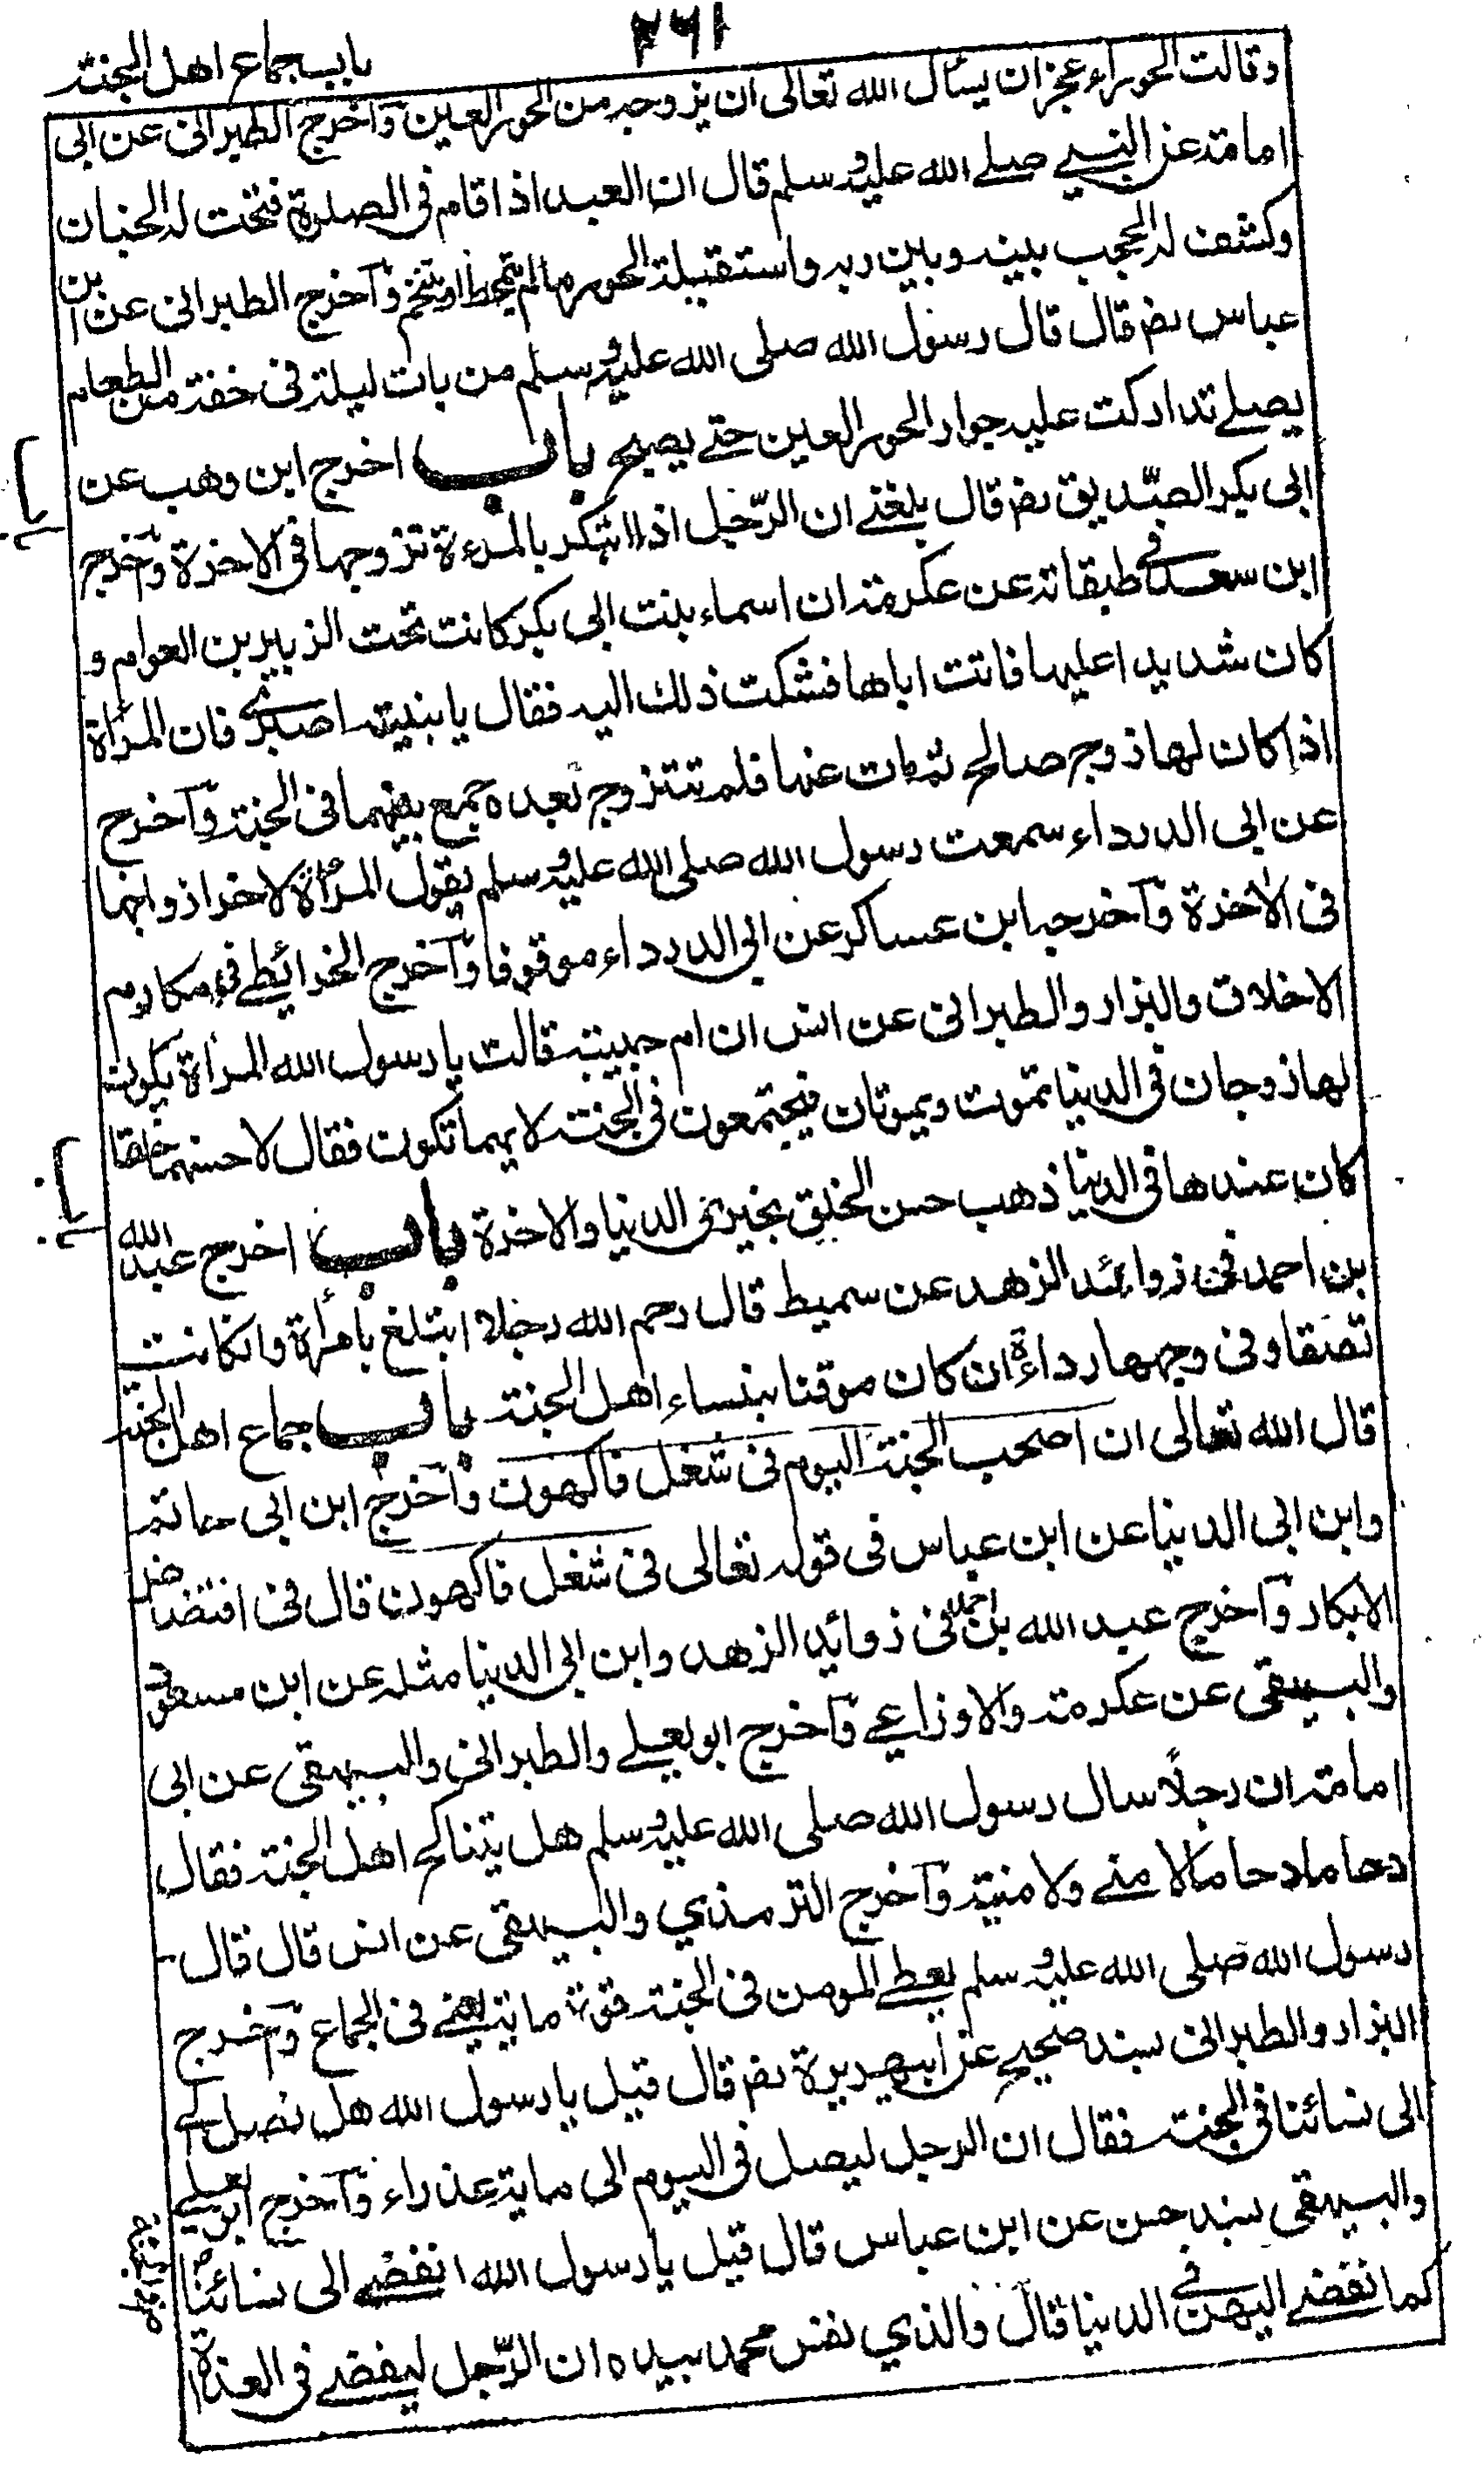 ٢٦١
باب جماع اهل الجنة
وقالت الحوراء عجز ان يسأل الله تعالى ان يزوجه من الحور العين وآخرج الطبرانى عن ابى
امامة عن النبي صلے الله عليه وسلم قال ان العبد اذا قام فى الصلوة فتحت له الجنان
وكشفت له الحجب بينه وبين ربه واستقبلته الحور ما لم يتمخط او يتنخم وآخرج الطبرانى عن ابن
عباس رضـ قال قال رسول الله صلى الله عليه وسلم من بات ليلة فى خفة من الطعام
يصلے تداركت عليه جوار الحور العين حتے يصبح باب اخرج ابن وهب عن
ابى بكر الصّديق رضـ قال بلغنے ان الرّجل اذا ابتكر بالمرءة تزوجها فى الاخرة وآخرج
ابن سعد فے طبقاته عن عكرمة ان اسماء بنت ابى بكر كانت تحت الزبير بن العوام و
كان شديدا عليها فاتت اباها فشكت ذلك اليه فقال يا بنية اصبرے فان المرأة
اذا كان لها زوج صالح ثم مات عنها فلم تتزوج بعده جمع بينهما فى الجنة وآخرج
عن ابى الدرداء سمعت رسول الله صلى الله عليه وسلم يقول المرأة لاخر ازواجها
فى الاخرة وآخرجه ابن عساكر عن ابى الدرداء موقوفا وآخرج الخرائطے فى مكارم
الاخلاق والبزار والطبرانى عن انس ان ام حبيبة قالت يا رسول الله المرأة يكون
لها زوجان فى الدنيا تموت ويموتان فيجتمعون فى الجنة لايهما تكون فقال لاحسنهما خلقا
كان عندها فى الدنيا ذهب حسن الخلق بخيرى الدنيا والاخرة باب اخرج عبد الله
بن احمد فى زوائد الزهد عن سميط قال رحم الله رجلا ابتلغ بامرأة وانكانت
نصفا وفى وجهها رداءة ان كان موقنا بنساء اهل الجنة باب جماع اهل الجنة
قال الله تعالى ان اصحب الجنة اليوم فى شغل فاكهون وآخرج ابن ابى حاتم
وابن ابى الدنيا عن ابن عباس فى قوله تعالى فى شغل فاكهون قال فى افتضاض
الابكار وآخرج عبد الله بن احمد فى زوائد الزهد وابن ابى الدنيا مثله عن ابن مسعود
والبيهقى عن عكرمة والاوزاعے وآخرج ابو يعلے والطبرانى والبيهقى عن ابى
امامة ان رجلًا سال رسول الله صلى الله عليه وسلم هل يتناكح اهل الجنة فقال
دحاما دحاما لا منے ولا منية وآخرج الترمذي والبيهقى عن انس قال قال
رسول الله صلى الله عليه وسلم يعطے المومن فى الجنة قوة ما يتے فى الجماع وآخرج
البزار والطبرانى بسند صحيح عن ابيهريرة رضـ قال قيل يا رسول الله هل نصل
الى نسائنا فى الجنة فقال ان الرجل ليصل فى اليوم الى ماية عذراء وآخرج ابو يعلے
والبيهقى بسند حسن عن ابن عباس قال قيل يا رسول الله انفضے الى نسائنا
كما نفضے اليهن فے الدنيا قال والذي نفس محمد بيده ان الرّجل ليفضے فى الغداة